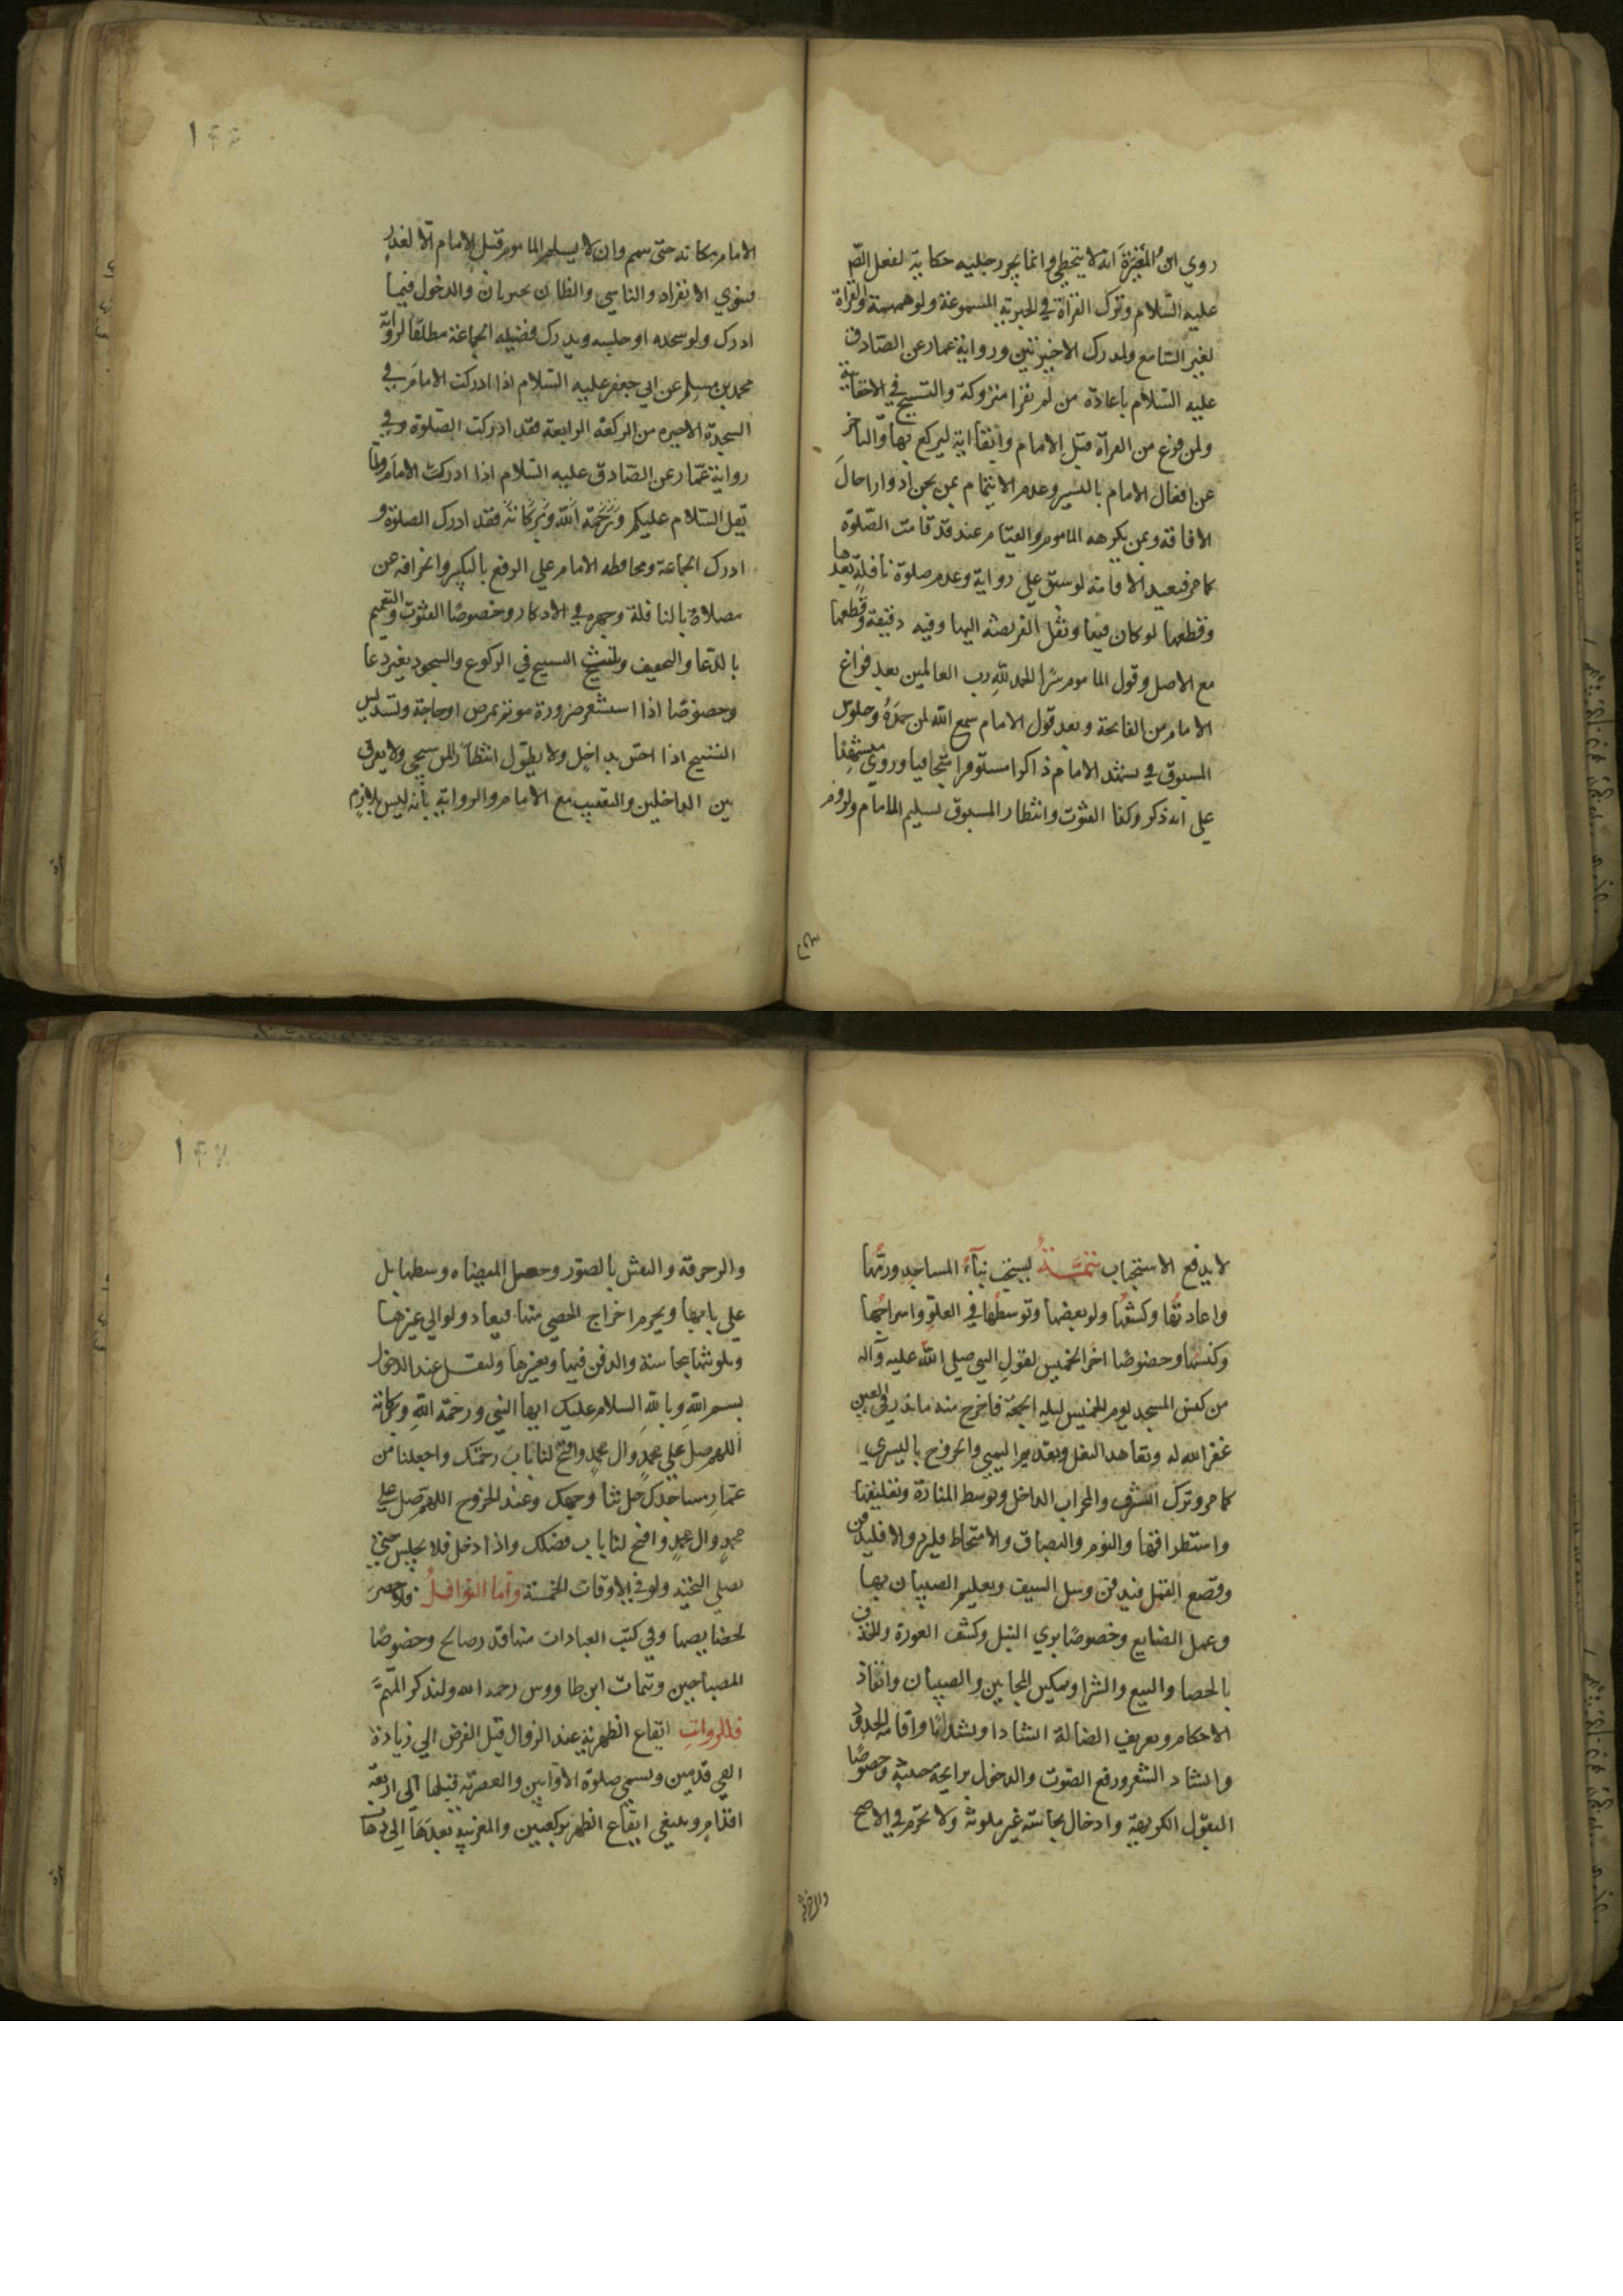 روي ابن المغيرة انه لا يتخطي وانما يجر رجليه حكاية لفعل الص
عليه السلام وترك القراة في الجهرية المسموعة ولو همهمة والقراة
لغير السامع ولمدرك الاخيرتين ورواية عمار عن الصادق
عليه السلام باعادة من لم يقرا متروكة والتسبيح في الاخفاتية
ولمن فرغ من القراة قبل الامام وابقا اية ليركع بها والتاخر
عن افعال الامام باليسير وعدم الايتمام بمن يجن ادوارا حال
الافاقة وبمن يكرهه الماموم والقيام عند قد قامت الصلوة
كما مر فيعيد الاقامة لو سبق علي رواية وعدم صلوة نافلة بعدها
وقطعها لو كان فيها ونقل الفريضة اليها وفيه دقيقة وقطعها
مع الاصل وقول الماموم سرا الحمد لله رب العالمين بعد فراغ
الامام من الفاتحة وبعد قول الامام سمع الله لمن حمده وجلوس
المسبوق في تشهد الامام ذاكرا مستوفزا متجافيا وروي مشهدا
علي انه ذكر وكذا القنوت وانتظار المسبوق تسليم الامام ولزوم
سجم
الامام مكانه حتى يتم وان لا يسلم الماموم قبل الامام الا لعذر
فينوي الانفراد والناسي والظان يجبران والدخول فيما
ادرك ولو سجده او جلسه ويدرك فضيلة الجماعة مطلقا لرواية
محمد بن مسلم عن ابي جعفر عليه السلام اذا ادركت الامام في
السجدة الاخيره من الركعة الرابعة فقد ادركت الصلوة وفي
رواية عمار عن الصادق عليه السلام اذا ادركت الامام ولما
يقل السلام عليكم ورحمة الله وبركاته فقد ادرك الصلوة و
ادرك الجماعة ومحافظة الامام علي الرفع بالتكبير وانحرافه عن
مصلاه بالنافلة وجهره في الاذكار وخصوصا القنوت والتعميم
بالدعا والتخفيف وتثليث التسبيح في الركوع والسجود بغير دعا
وخصوصا اذا استشعر ضرورة موتم بمرض او حاجة وتسديس
التسبيح اذا احس بداخل ولا يطول انتظارا لمن سيجي ولا يفرق
بين الداخلين والتعقيب مع الامام والرواية بانه ليس بلازم
١٤٦
لا يدفع الاستحباب تتمة يستحب بناء المساجد ورمها
واعادتها وكشفها ولو بعضها وتوسطها في العلو واسراجها
وكنسها وخصوصا اخر الخميس لقول النبي صلي الله عليه وآله
من كنس المسجد يوم الخميس ليلة الجمعة فاخرج منه ما يذر في العين
غفر الله له وتعاهد النعل وتقديم اليمني والخروج باليسري
كما مر وترك الشرف والمحراب الداخل وتوسط المنارة وتعليتها
واستطراقها والنوم والبصاق والامتخاط فليرده والا فليدفن
وقصع القمل فيدفن وسل السيف وتعليم الصبيان بها
وعمل الصنايع وخصوصا بري النبل وكشف العورة والخذف
بالحصا والبيع والشرا وتمكين المجانين والصبيان وانفاذ
الاحكام وتعريف الضالة انشادا ونشدانا واقامة الحدود
وانشاد الشعر ورفع الصوت والدخول برايحة خبيثة وخصوصا
البقول الكريهة وادخال نجاسة غير ملوثة ولا تحرم في الاصح
والزخرفة
والزخرفة والنقش بالصور وجعل الميضاه وسطها بل
علي بابها ويحرم اخراج الحصي منها فيعاد ولو الي غيرها
وتلويثها بنجاسة والدفن فيها وتغيرها وليقل عند الدخول
بسم الله وبالله السلام عليك ايها النبي ورحمة الله وبركاته
اللهم صل علي محمد وال محمد وافتح لنا باب رحمتك واجعلنا من
عمار مساجدك جل ثنا وجهك وعند الخروج اللهم صل علي
محمد وال محمد وافتح لنا باب فضلك واذا دخل فلا يجلس حتي
يصلي التحية ولو في الاوقات الخمسة واما النوافل فلا حصر
لخصايصها وفي كتب العبادات منها قدر صالح وخصوصا
المصباحين وتتمات ابن طاووس رحمه الله ولنذكر المهم
فللرواتب ايقاع الظهرية عند الزوال قبل الفرض الي زيادة
الفي قدمين ويسمي صلوة الاوابين والعصرية قبلها الي اربعة
اقدام وينبغي ايقاع الظهر بركعتين والمغربية بعدها الي ذهاب
١٤٧